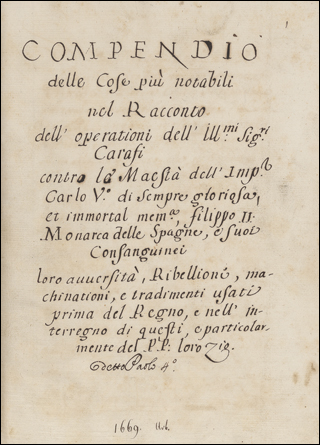 1
COMPENDIO
delle Cose più notabili
nel Racconto
dell' operationi dell' Ill.mi Sig.ri
Carafi
contro la Maestà dell' Imp.e
Carlo V.o di sempre gloriosa,
et immortal mem.a, filippo II.
Monarca delle Spagne, e suoi
Consanguinei
loro avversità, Ribellioni, ma-
chinationi, e tradimenti usati
prima del Regno, e nell' in-
terregno di questi, e particolar-
mente del PP: loro Zio.
detto Paolo 4.o
1669.